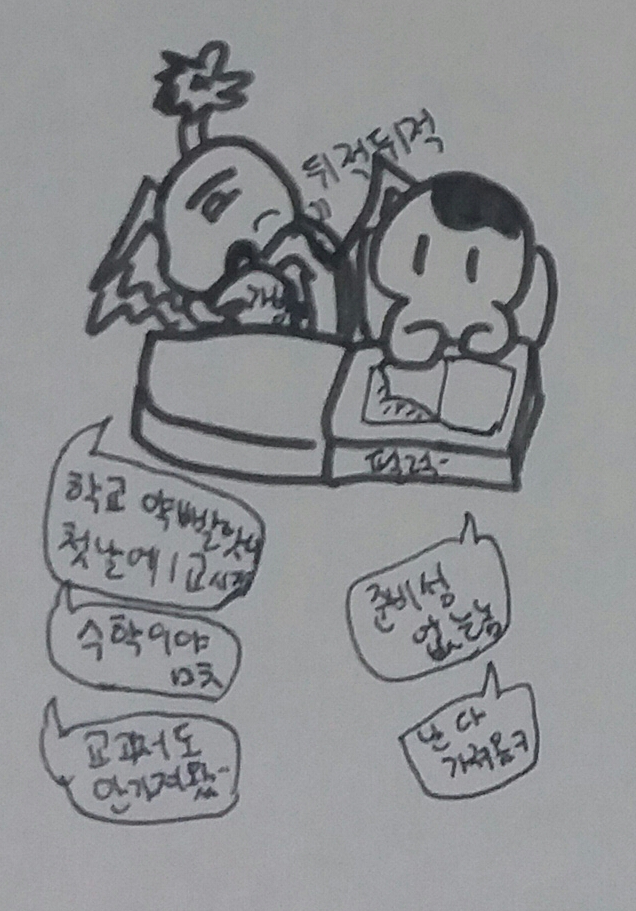 뒤적뒤적
가방
펄럭-
학교 약빨았나
첫날에 1교시가
수학이야
미친
교과서도
안가져왔-
준비성
없는놈
난 다
가져옴ㅋ